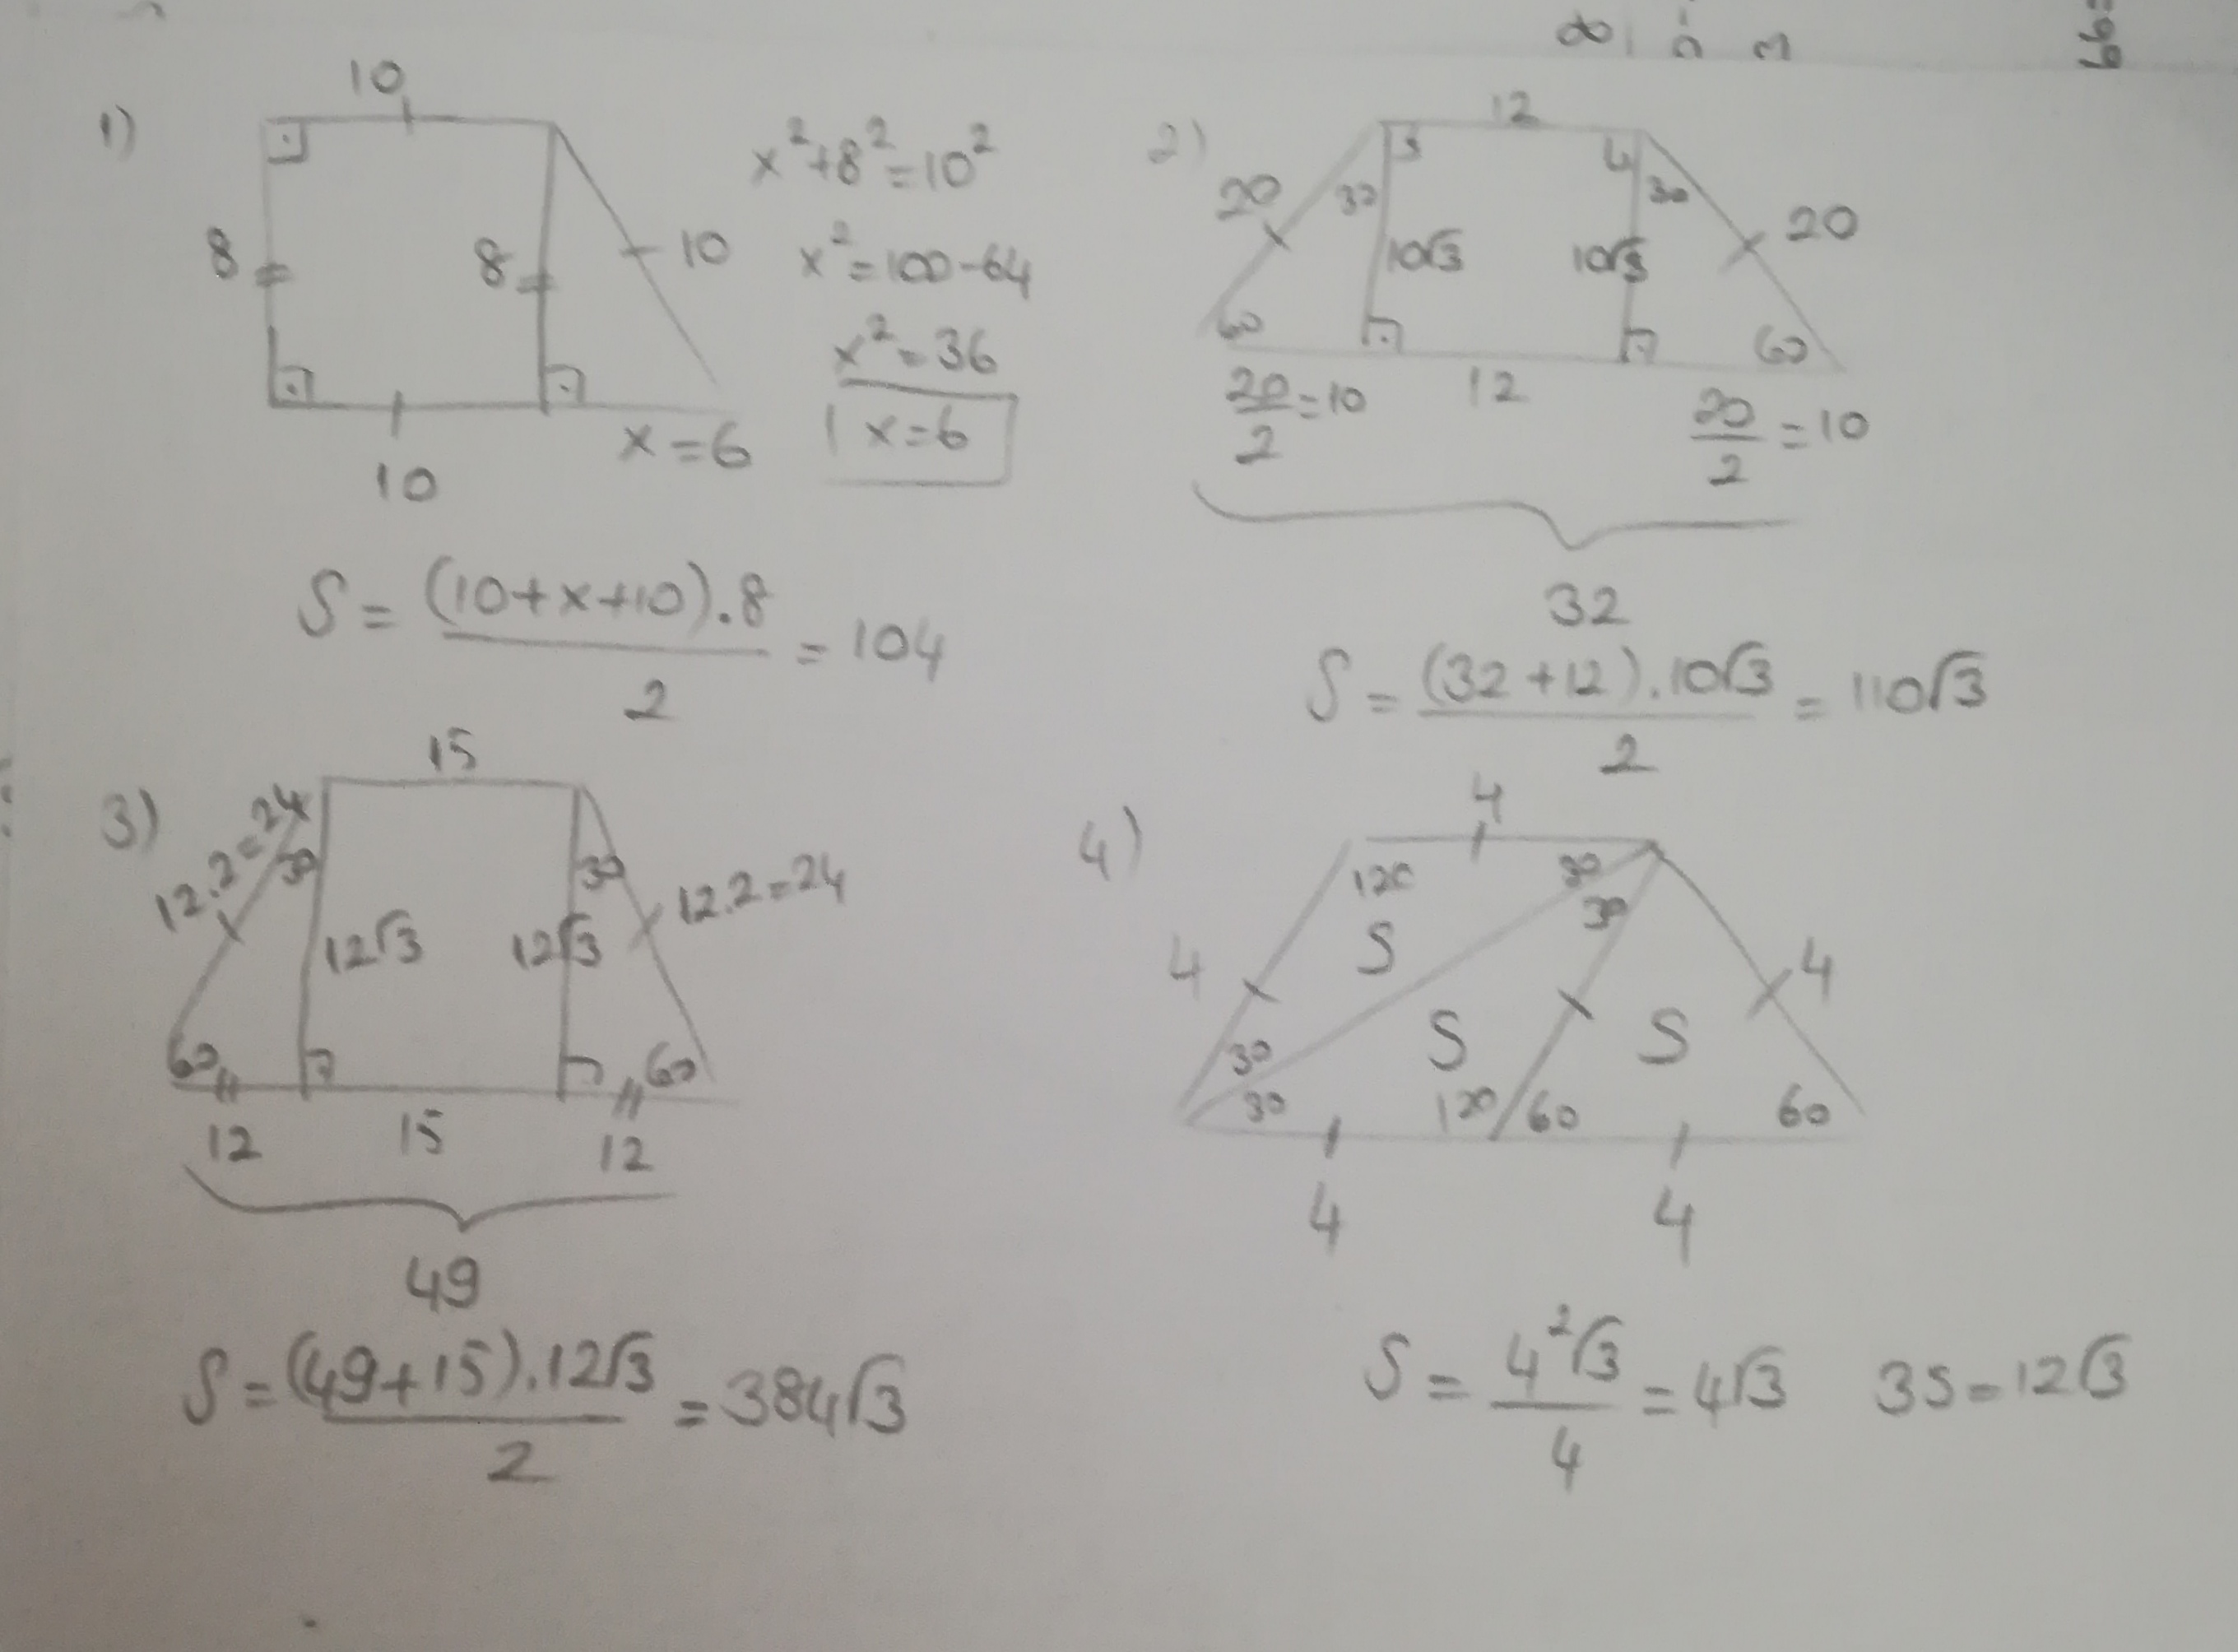 1)
10
8
8
10
10
x = 6
x²+8²=10²
x²=100-64
x²=36
x=6
S = (10+x+10).8 / 2 = 104
2)
12
20
30
30
20
10√3
10√3
60
60
20/2=10
12
20/2=10
32
S = (32+12).10√3 / 2 = 110√3
3)
15
12.2=24
30
30
12.2=24
12√3
12√3
60
60
12
15
12
49
S = (49+15).12√3 / 2 = 384√3
4)
4
120
30
30
S
4
4
S
S
30
30
120
60
60
4
4
S = 4²√3 / 4 = 4√3 3S=12√3